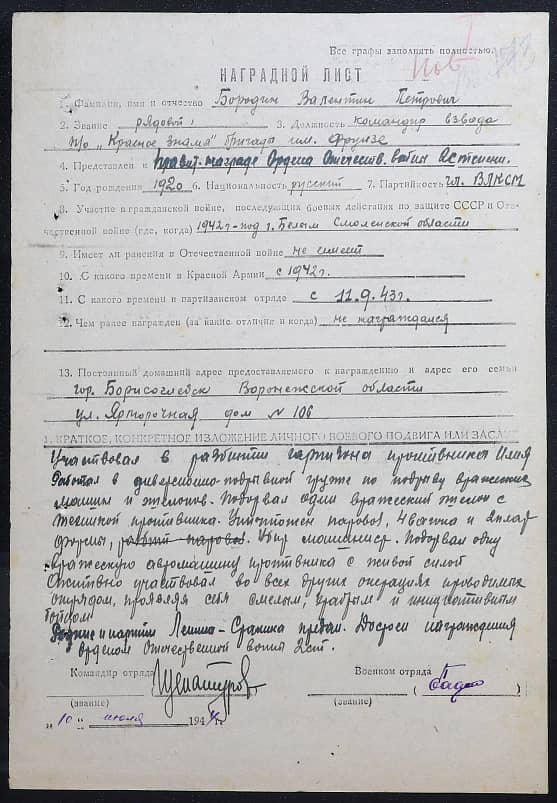 Все графы заполнять полностью.
НАГРАДНОЙ ЛИСТ
1. Фамилия, имя и отчество Бородин Валентин Петрович
2. Звание рядовой 3. Должность командир взвода
п/о "Красное знамя" бригады им. Фрунзе
4. Представлен к правит. награде Ордена Отечеств. войны 2 степени.
5. Год рождения 1920 6. Национальность русский 7. Партийность чл. ВЛКСМ
8. Участие в гражданской войне, последующих боевых действиях по защите СССР и Оте-
чественной войне (где, когда) 1942г - под г. Белым Смоленской области
9. Имеет ли ранения в Отечественной войне не имеет
10. С какого времени в Красной Армии с 1942г.
11. С какого времени в партизанском отряде с 11.9.43г.
12. Чем ранее награжден (за какие отличия и когда) не награждался
13. Постоянный домашний адрес предоставляемого к награждению и адрес его семьи
гор. Борисоглебск Воронежской области
ул. Ярморочная дом N 106
1. КРАТКОЕ, КОНКРЕТНОЕ ИЗЛОЖЕНИЕ ЛИЧНОГО БОЕВОГО ПОДВИГА ИЛИ ЗАСЛУГ
Участвовал в разбитии гарнизона противника
Работал в диверсионно-подрывной группе по подрыву вражеских
машин и эшелонов. Подорвал один вражеский эшелон с
техникой противника. Уничтожен паровоз, 4 вагона и 2 плат
формы, Убит машинист. Подорвал одну
вражескую автомашину противника с живой силой
Активно участвовал во всех других операциях проводимых
отрядом, проявляя себя смелым, храбрым и инициативным
бойцом
Родине и партии Ленина-Сталина предан. Достоен награждения
орденом Отечественной войны 2 ст.
Командир отряда Военком отряда
(звание) (звание)
"10" июля 1944г.